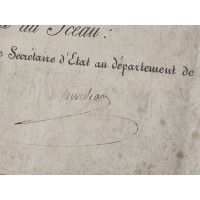 du Sceau :
Secrétaire d'Etat au département de